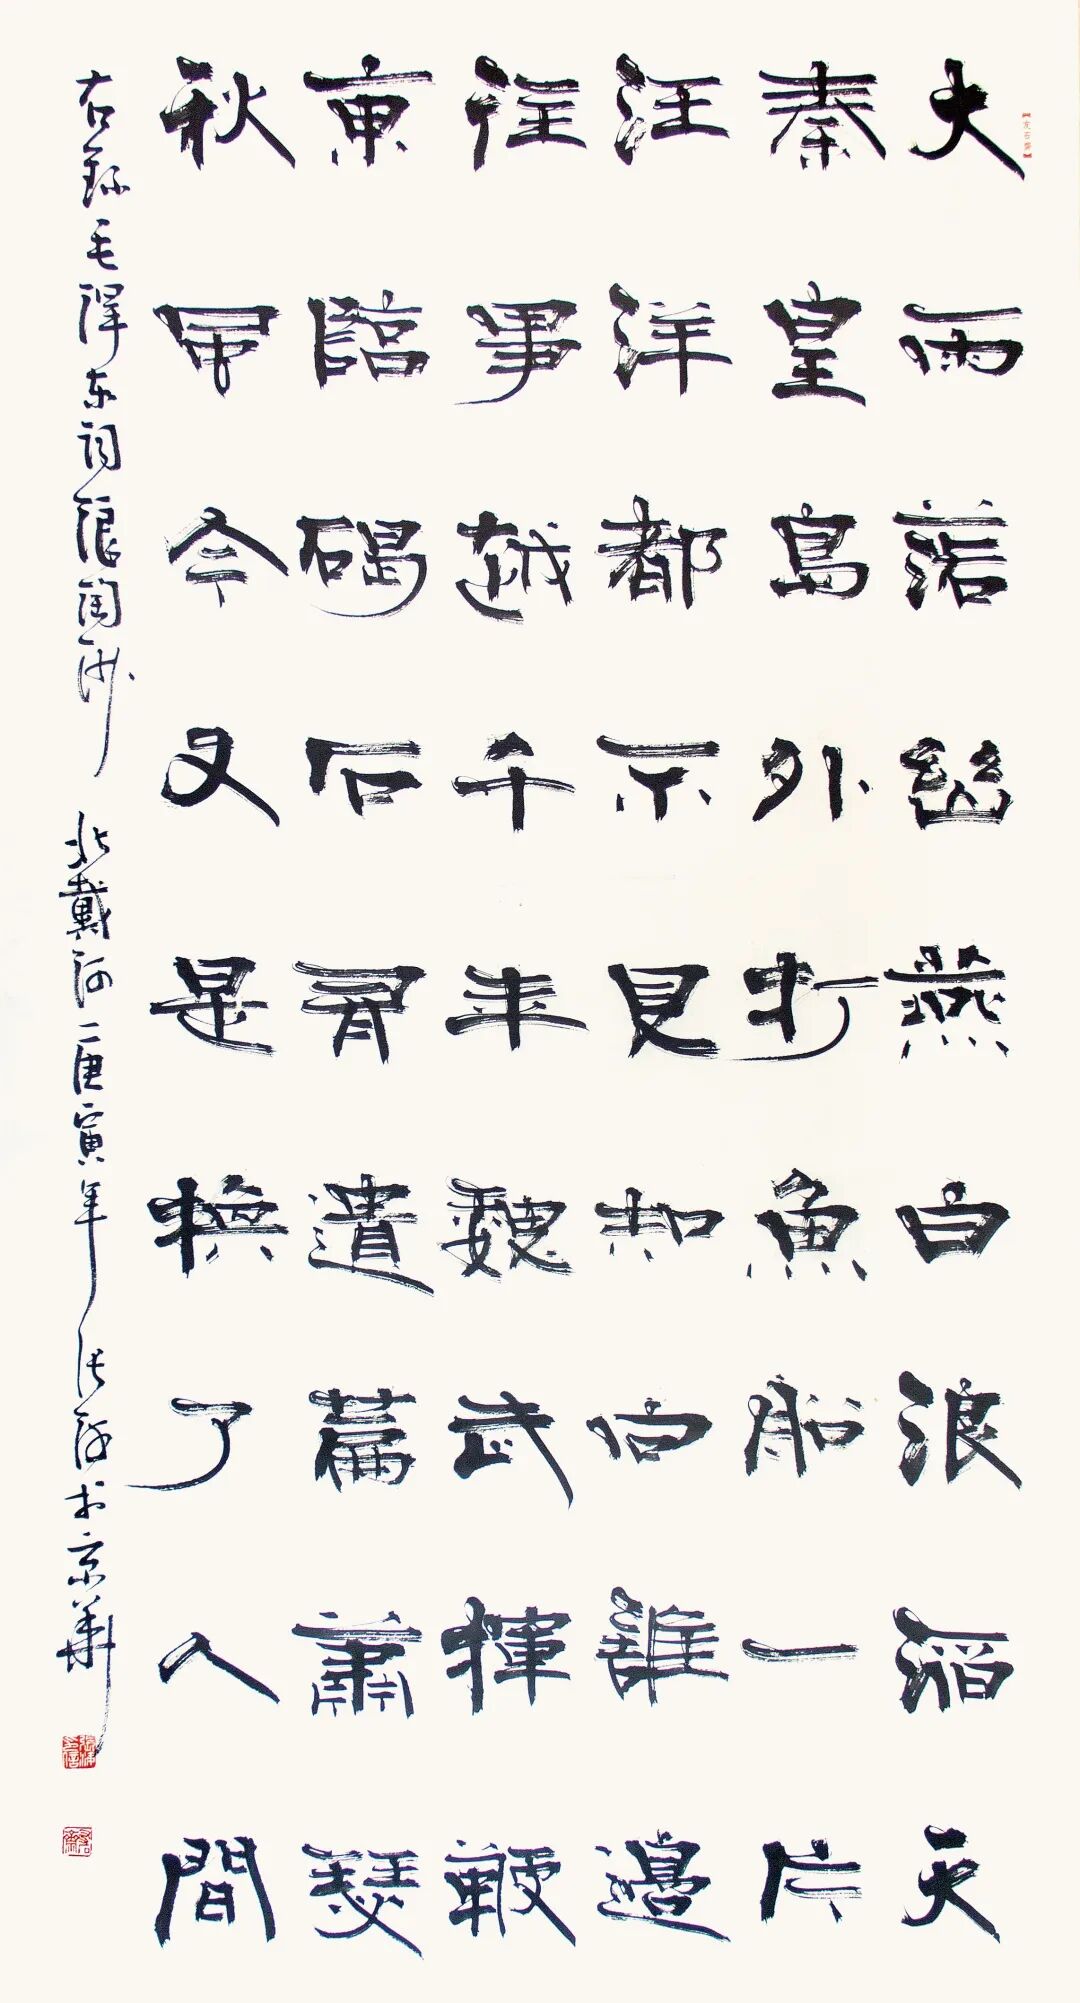 大雨落幽燕白浪滔天
秦皇島外打魚船一片
汪洋都不見知向誰邊
往事越千年魏武揮鞭
東臨碣石有遺篇蕭瑟
秋風今又是換了人間
右錄毛澤东詞浪淘沙 北戴河 庚寅年 京華